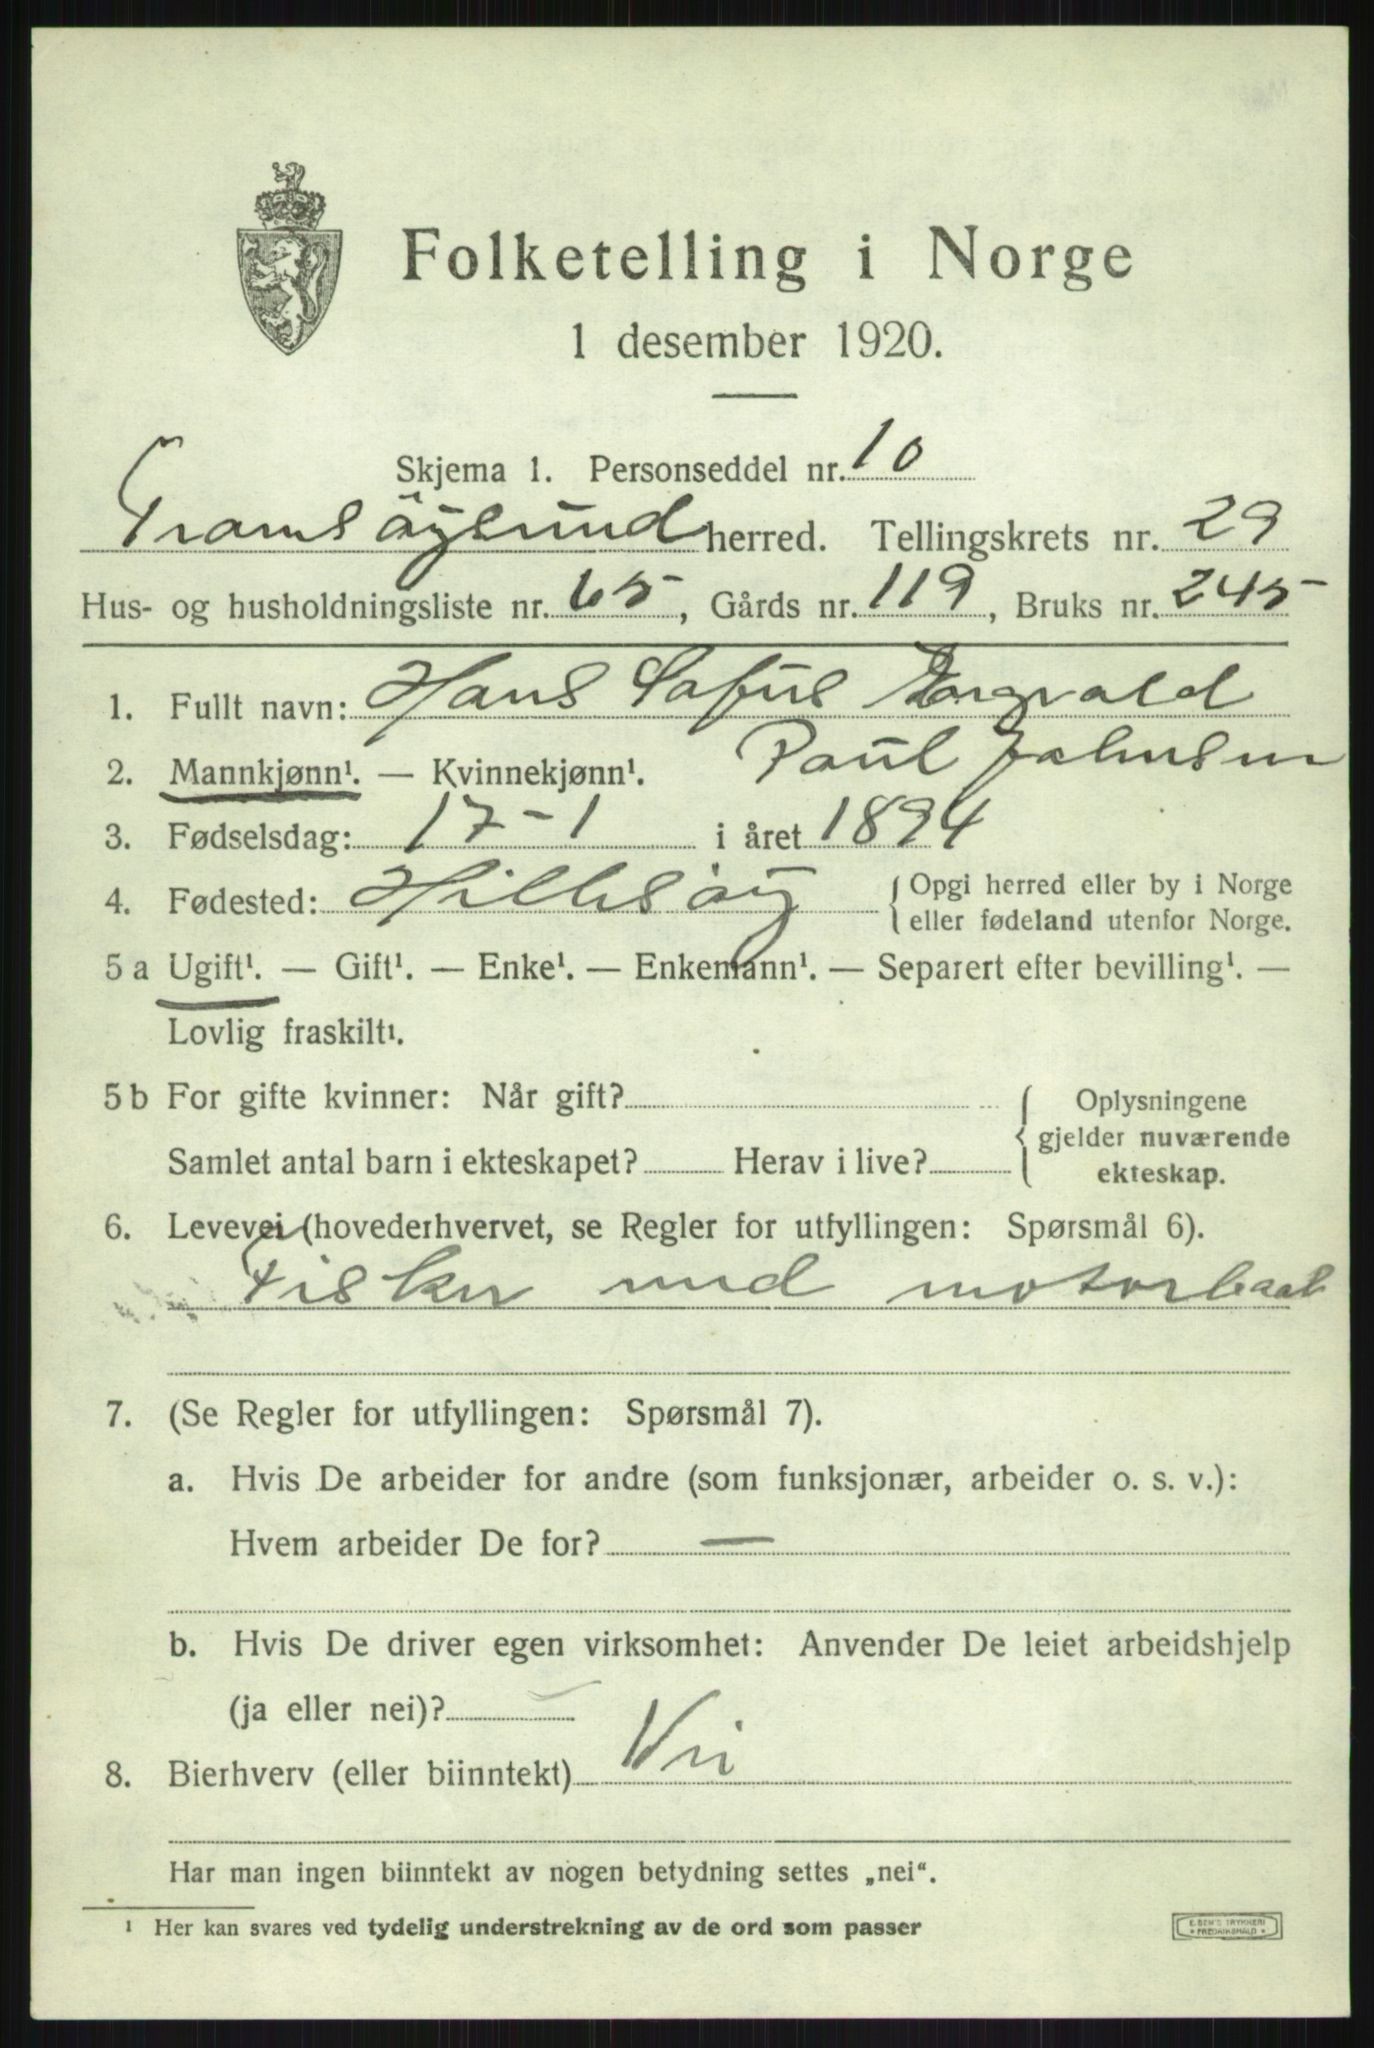 Folketelling i Norge
1 desember 1920.
Skjema 1. Personseddel nr. 10
Tromsöysund herred. Tellingskrets nr. 29
Hus- og husholdningsliste nr. 65, Gårds nr. 119, Bruks nr. 245
1. Fullt navn: Hans Sofus Torgvald
2. Mannkjønn¹. — Kvinnekjønn¹. Paul Johnsen
3. Fødselsdag: 17-1 i året 1894
4. Fødested: Hillesöy {Opgi herred eller by i Norge
eller fødeland utenfor Norge.
5 a Ugift¹. — Gift¹. — Enke¹. — Enkemann¹. — Separert efter bevilling¹. —
Lovlig fraskilt¹.
5 b For gifte kvinner: Når gift? { Oplysningene
gjelder nuværende
Samlet antal barn i ekteskapet? Herav i live? ekteskap.
6. Levevei (hovederhvervet, se Regler for utfyllingen: Spørsmål 6).
Fisker med motorbaat
7. (Se Regler for utfyllingen: Spørsmål 7).
a. Hvis De arbeider for andre (som funksjonær, arbeider o. s. v.):
Hvem arbeider De for? —
b. Hvis De driver egen virksomhet: Anvender De leiet arbeidshjelp
(ja eller nei)?
8. Bierhverv (eller biinntekt) Nei
Har man ingen biinntekt av nogen betydning settes „nei“.
¹ Her kan svares ved tydelig understrekning av de ord som passer
E. SEM'S TRYKKERI
FREDRIKSHALD